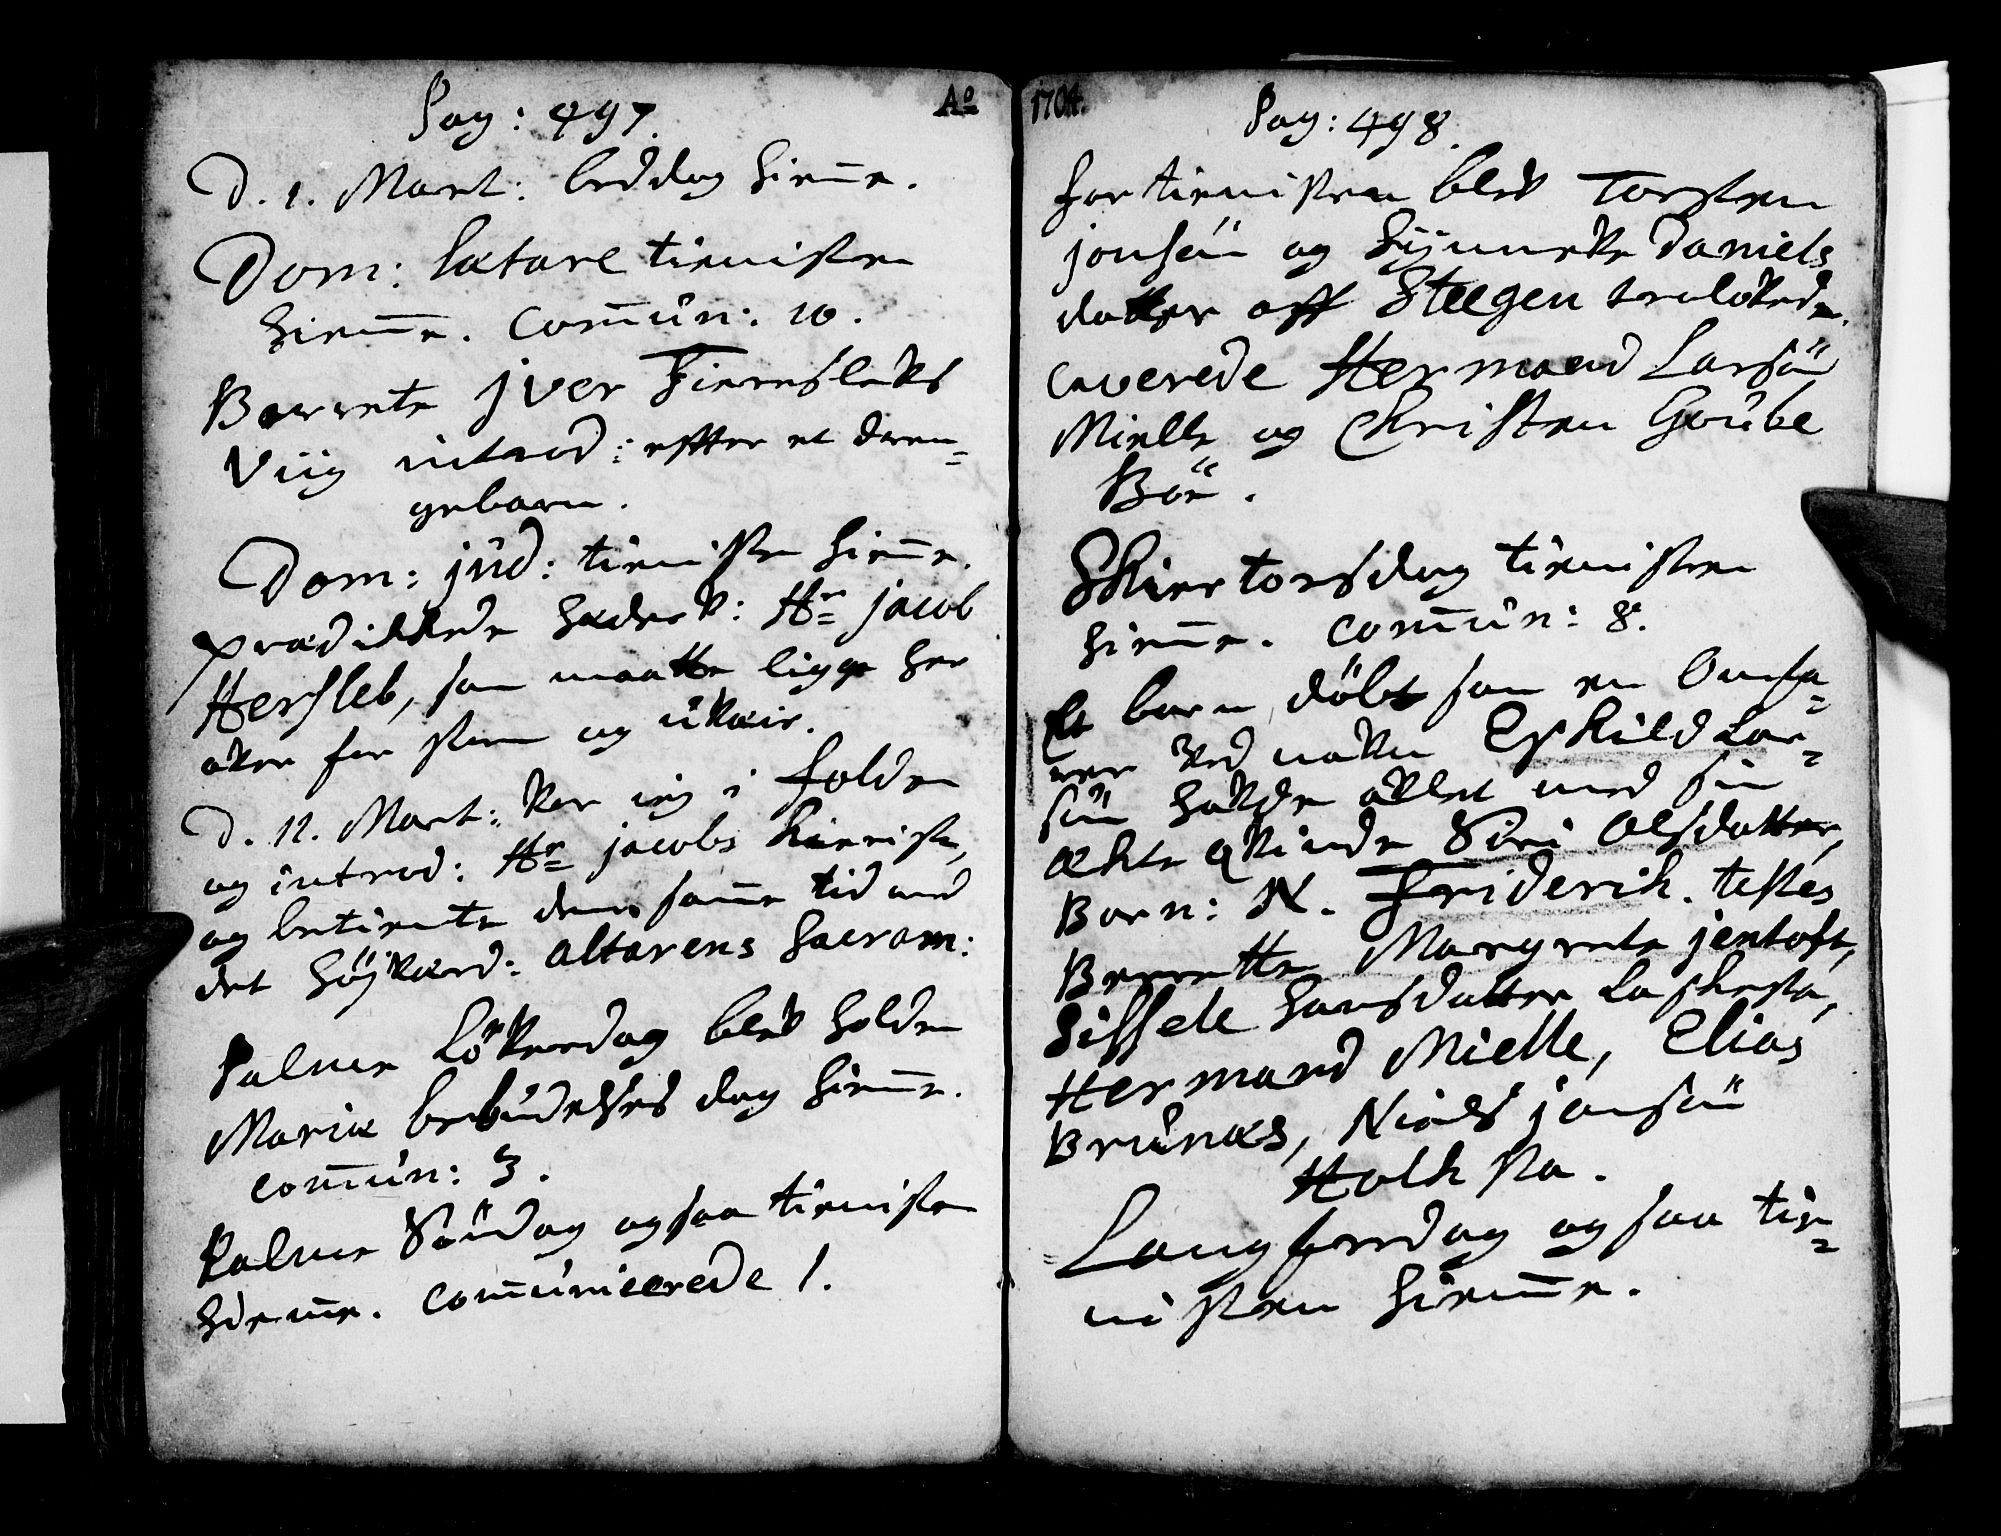 Pag: 497.
Ao
D. 1. Mart: beddag hiem̄e.
Dom: Lætare tienisten
hiem̄e. Com̄un: 10.
Berrete Jver Fieresletts
Viig introd: effter et dren=
gebarn.
Dom: jud: tieniste hiem̄e.
prædikkede hæderv: Hr jacob
Hersleb, som maatte ligge her
over for storm og uvæir.
D. 12. Mart: var ieg i Folden
og introd: Hr jacobs kieriste,
og betiente dem sam̄e tid med
det højværd: Altarens Sacram:
Palme Løverdag blev holden
Mariæ bebudelses dag hiem̄e.
com̄un: 3.
Palme Søndag ogsaa tienisten
hiem̄e. com̄unicerede 1.
1704.
Pag: 498.
for tienisten blev Torsten
jonsøn og Synneve Daniels
datter aff Steegen trolovede.
caverede Hermand Larsøn
Mielle og Christen Grube
Bøe.
Skiertorsdag tienisten
hiem̄e. com̄un: 8.
Et barn døbt som en Omfa=
rer ved navn Eskild Lar=
søn hafde aflet med sin
ækte qvinde Siri Olsdatter,
Barn: N. Friderich. testes
Berrette Margrete jentoft,
Sissele Hansdatter Laskesta,
Hermand Mielle, Elias
Brunæs, Niels jonsøn
Holksta.
Langfredag ogsaa tie=
nisten hiem̄e.